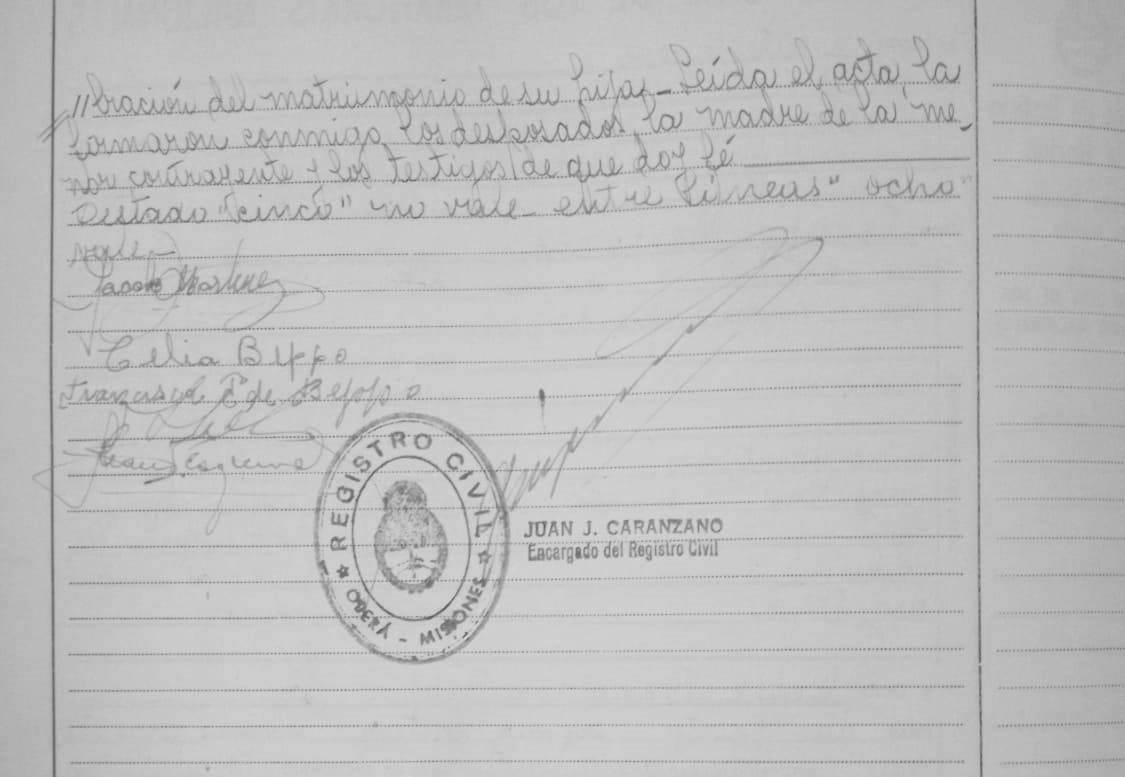 //bración del matrimonio de su hija,- Leída el acta, la
formaron conmigo, los desposados, la madre de la me-
nor contrayente y los testigos, de que doy fé
Testado "cinco" no vale - entre líneas "ocho"
vale,-
Martinez
Celia Beppo
de Beppo
REGISTRO CIVIL
MISIONES
JUAN J. CARANZANO
Encargado del Registro Civil